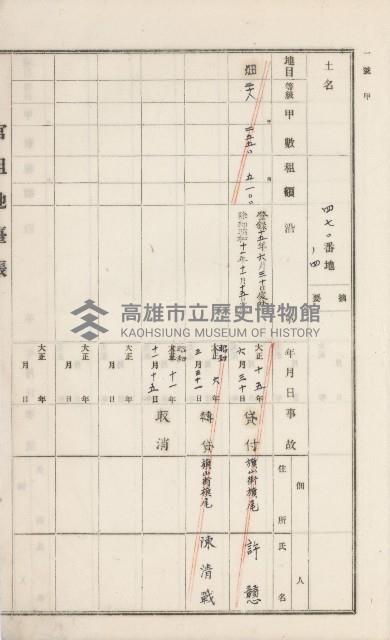 一號甲
土名
四七〇番地ノ四
地目 等級 甲數 租額 沿 摘要
畑 二五五〇 五一〇
登錄十五年六月三十日
除却昭和十一年十一月十五
年月日 事故 住所 氏名 佃人
大正十五年六月三十日 貸付 旗山街旗尾 許戇
大正 昭和六年三月三十一日 轉貸 旗山街旗尾 陳清戰
大正 昭和十一年十一月十五日 取消
大正 年 月 日
大正 年 月 日
官租地臺帳
高雄市立歷史博物館
KAOHSIUNG MUSEUM OF HISTORY